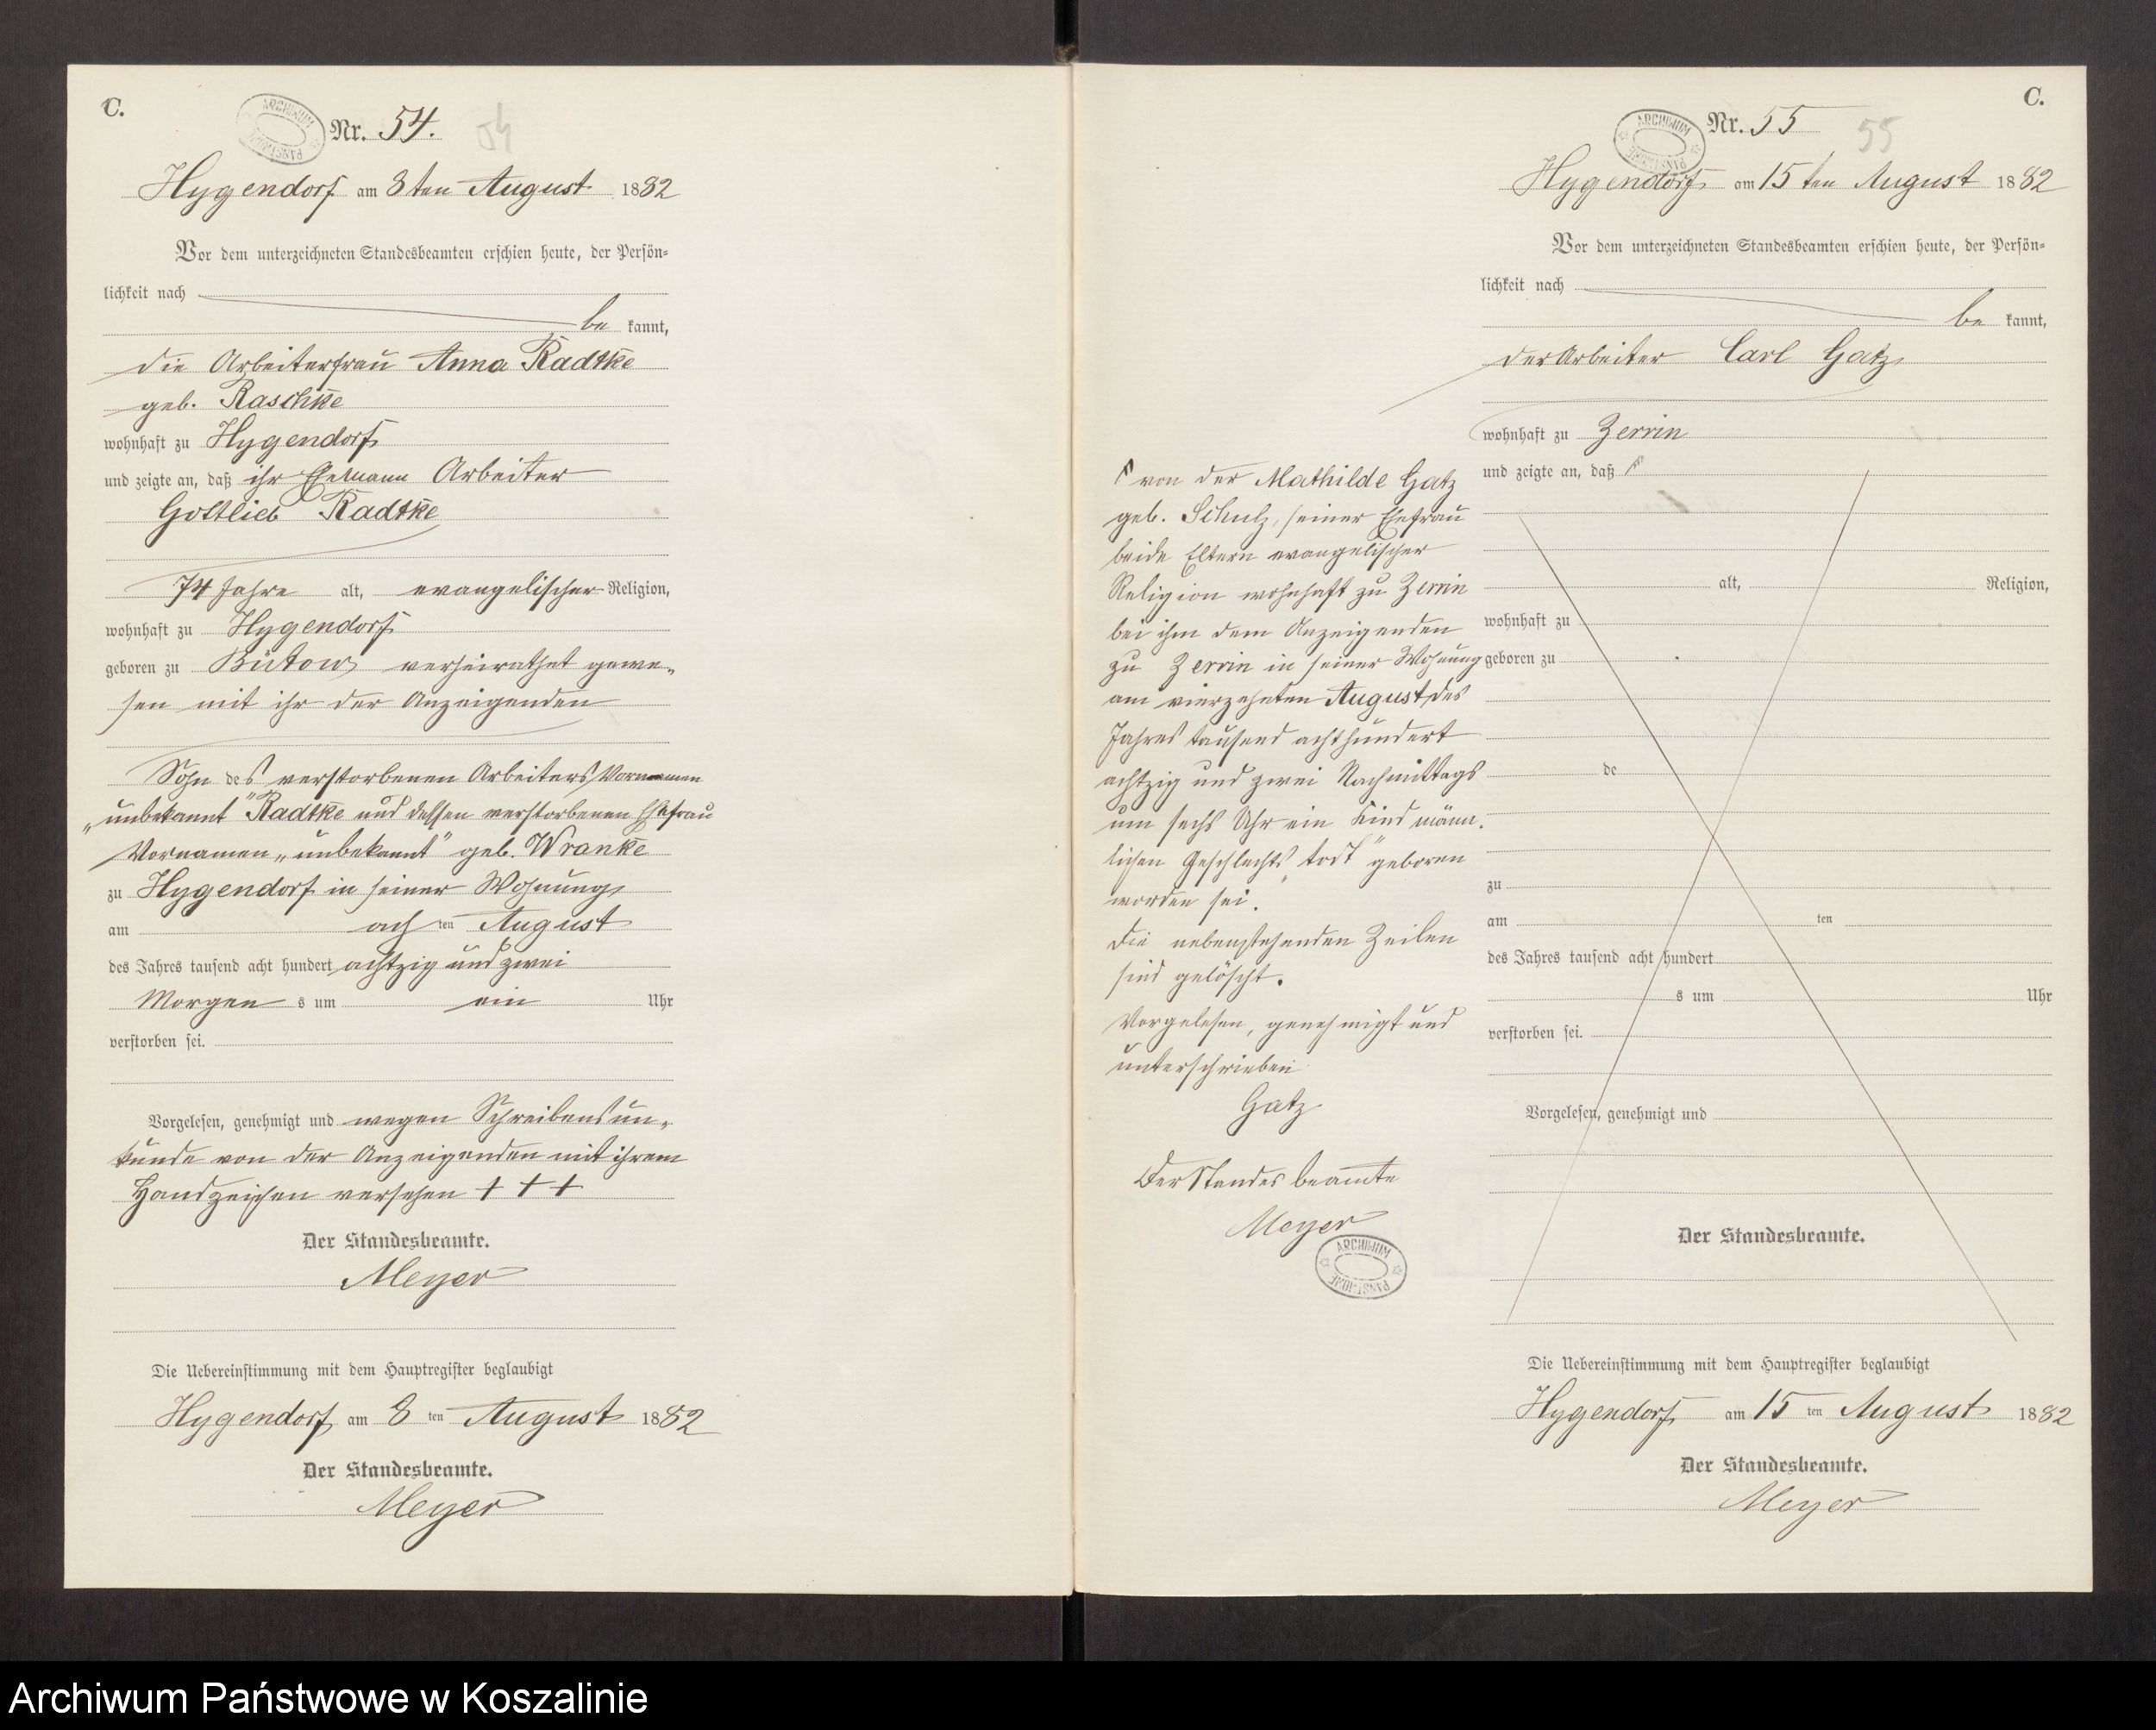 C.
ARCHIWUM PAŃSTWOWE
Nr. 54.
54
Hygendorf am 8ten August 1882
Vor dem unterzeichneten Standesbeamten erschien heute, der Persön-
lichkeit nach
be kannt,
die Arbeiterfrau Anna Radtke
geb. Raschke
wohnhaft zu Hygendorf
und zeigte an, daß ihr Ehemann Arbeiter
Gottlieb Radtke
74 Jahre alt, evangelischer Religion,
wohnhaft zu Hygendorf
geboren zu Bütow verheirathet gewe-
sen mit ihr der Anzeigenden
Sohn des verstorbenen Arbeiters Vornamen
„unbekannt" Radtke und dessen verstorbenen Ehefrau
Vornamen „unbekannt" geb. Wranke
zu Hygendorf in seiner Wohnung
am ach ten August
des Jahres tausend acht hundert achtzig und zwei
Morgen s um ein Uhr
verstorben sei.
Vorgelesen, genehmigt und wegen Schreibensun-
kunde von der Anzeigenden mit ihrem
Handzeichen versehen + + +
Der Standesbeamte.
Meyer
Die Uebereinstimmung mit dem Hauptregister beglaubigt
Hygendorf am 8 ten August 1882
Der Standesbeamte.
Meyer
C.
ARCHIWUM PAŃSTWOWE
Nr. 55
55
Hygendorf am 15 ten August 1882
Vor dem unterzeichneten Standesbeamten erschien heute, der Persön-
lichkeit nach
be kannt,
der Arbeiter Carl Gatz
wohnhaft zu Zerrin
und zeigte an, daß
von der Mathilde Gatz
geb. Schulz, seiner Ehefrau
beide Eltern evangelischer
Religion wohnhaft zu Zerrin
bei ihm dem Anzeigenden
zu Zerrin in seiner Wohnung
am vierzehnten August des
Jahres tausend achthundert
achtzig und zwei Nachmittags
um sechs Uhr ein Kind männ-
lichen Geschlechts „todt" geboren
worden sei.
Die nebenstehenden Zeilen
sind gelöscht.
Vorgelesen, genehmigt und
unterschrieben
Gatz
Der Standesbeamte
Meyer
ARCHIWUM PAŃSTWOWE
alt, Religion,
wohnhaft zu
geboren zu
de
zu
am ten
des Jahres tausend acht hundert
s um Uhr
verstorben sei.
Vorgelesen, genehmigt und
Der Standesbeamte.
Die Uebereinstimmung mit dem Hauptregister beglaubigt
Hygendorf am 15 ten August 1882
Der Standesbeamte.
Meyer
Archiwum Państwowe w Koszalinie